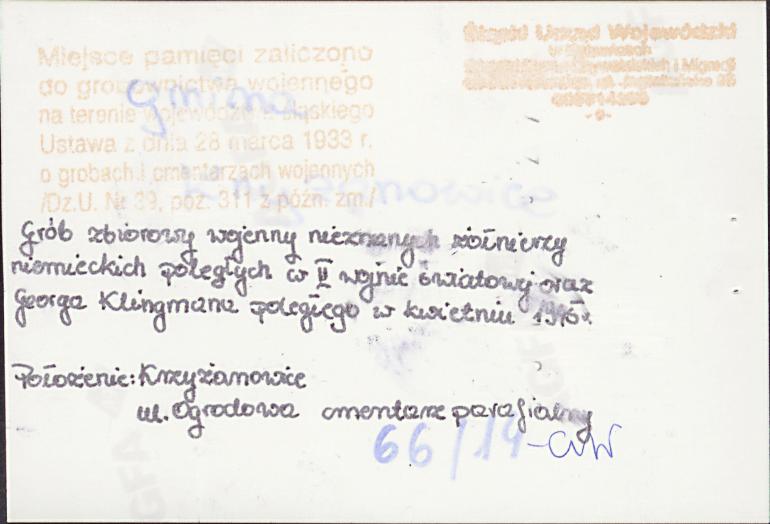 Miejsce pamięci zaliczono
do grobownictwa wojennego
na terenie województwa śląskiego
Ustawa z dnia 28 marca 1933 r.
o grobach i cmentarzach wojennych
/Dz.U. Nr 39, poz. 311 z późn. zm./
Śląski Urząd Wojewódzki
w Katowicach
i Migracji
-9-
Gmina
Krzyżanowice
Grób zbiorowy wojenny nieznanych żołnierzy
niemieckich poległych w II wojnie światowej oraz
Georga Klingmana poległego w kwietniu 1945 r.
Położenie: Krzyżanowice
ul. Ogrodowa cmentarz parafialny
66/14-CWW